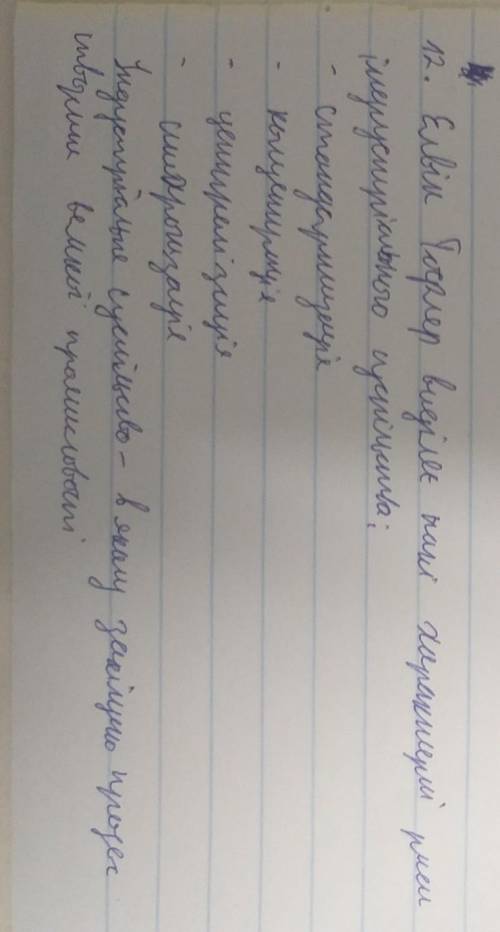 12. Елвін Тофлер виділяє такі характерні риси
індустріального суспільства:
- стандартизація
- концентрація
- централізація
- синхронізація
Індустріальне суспільство - в якому закінчено процес
створення великої промисловості